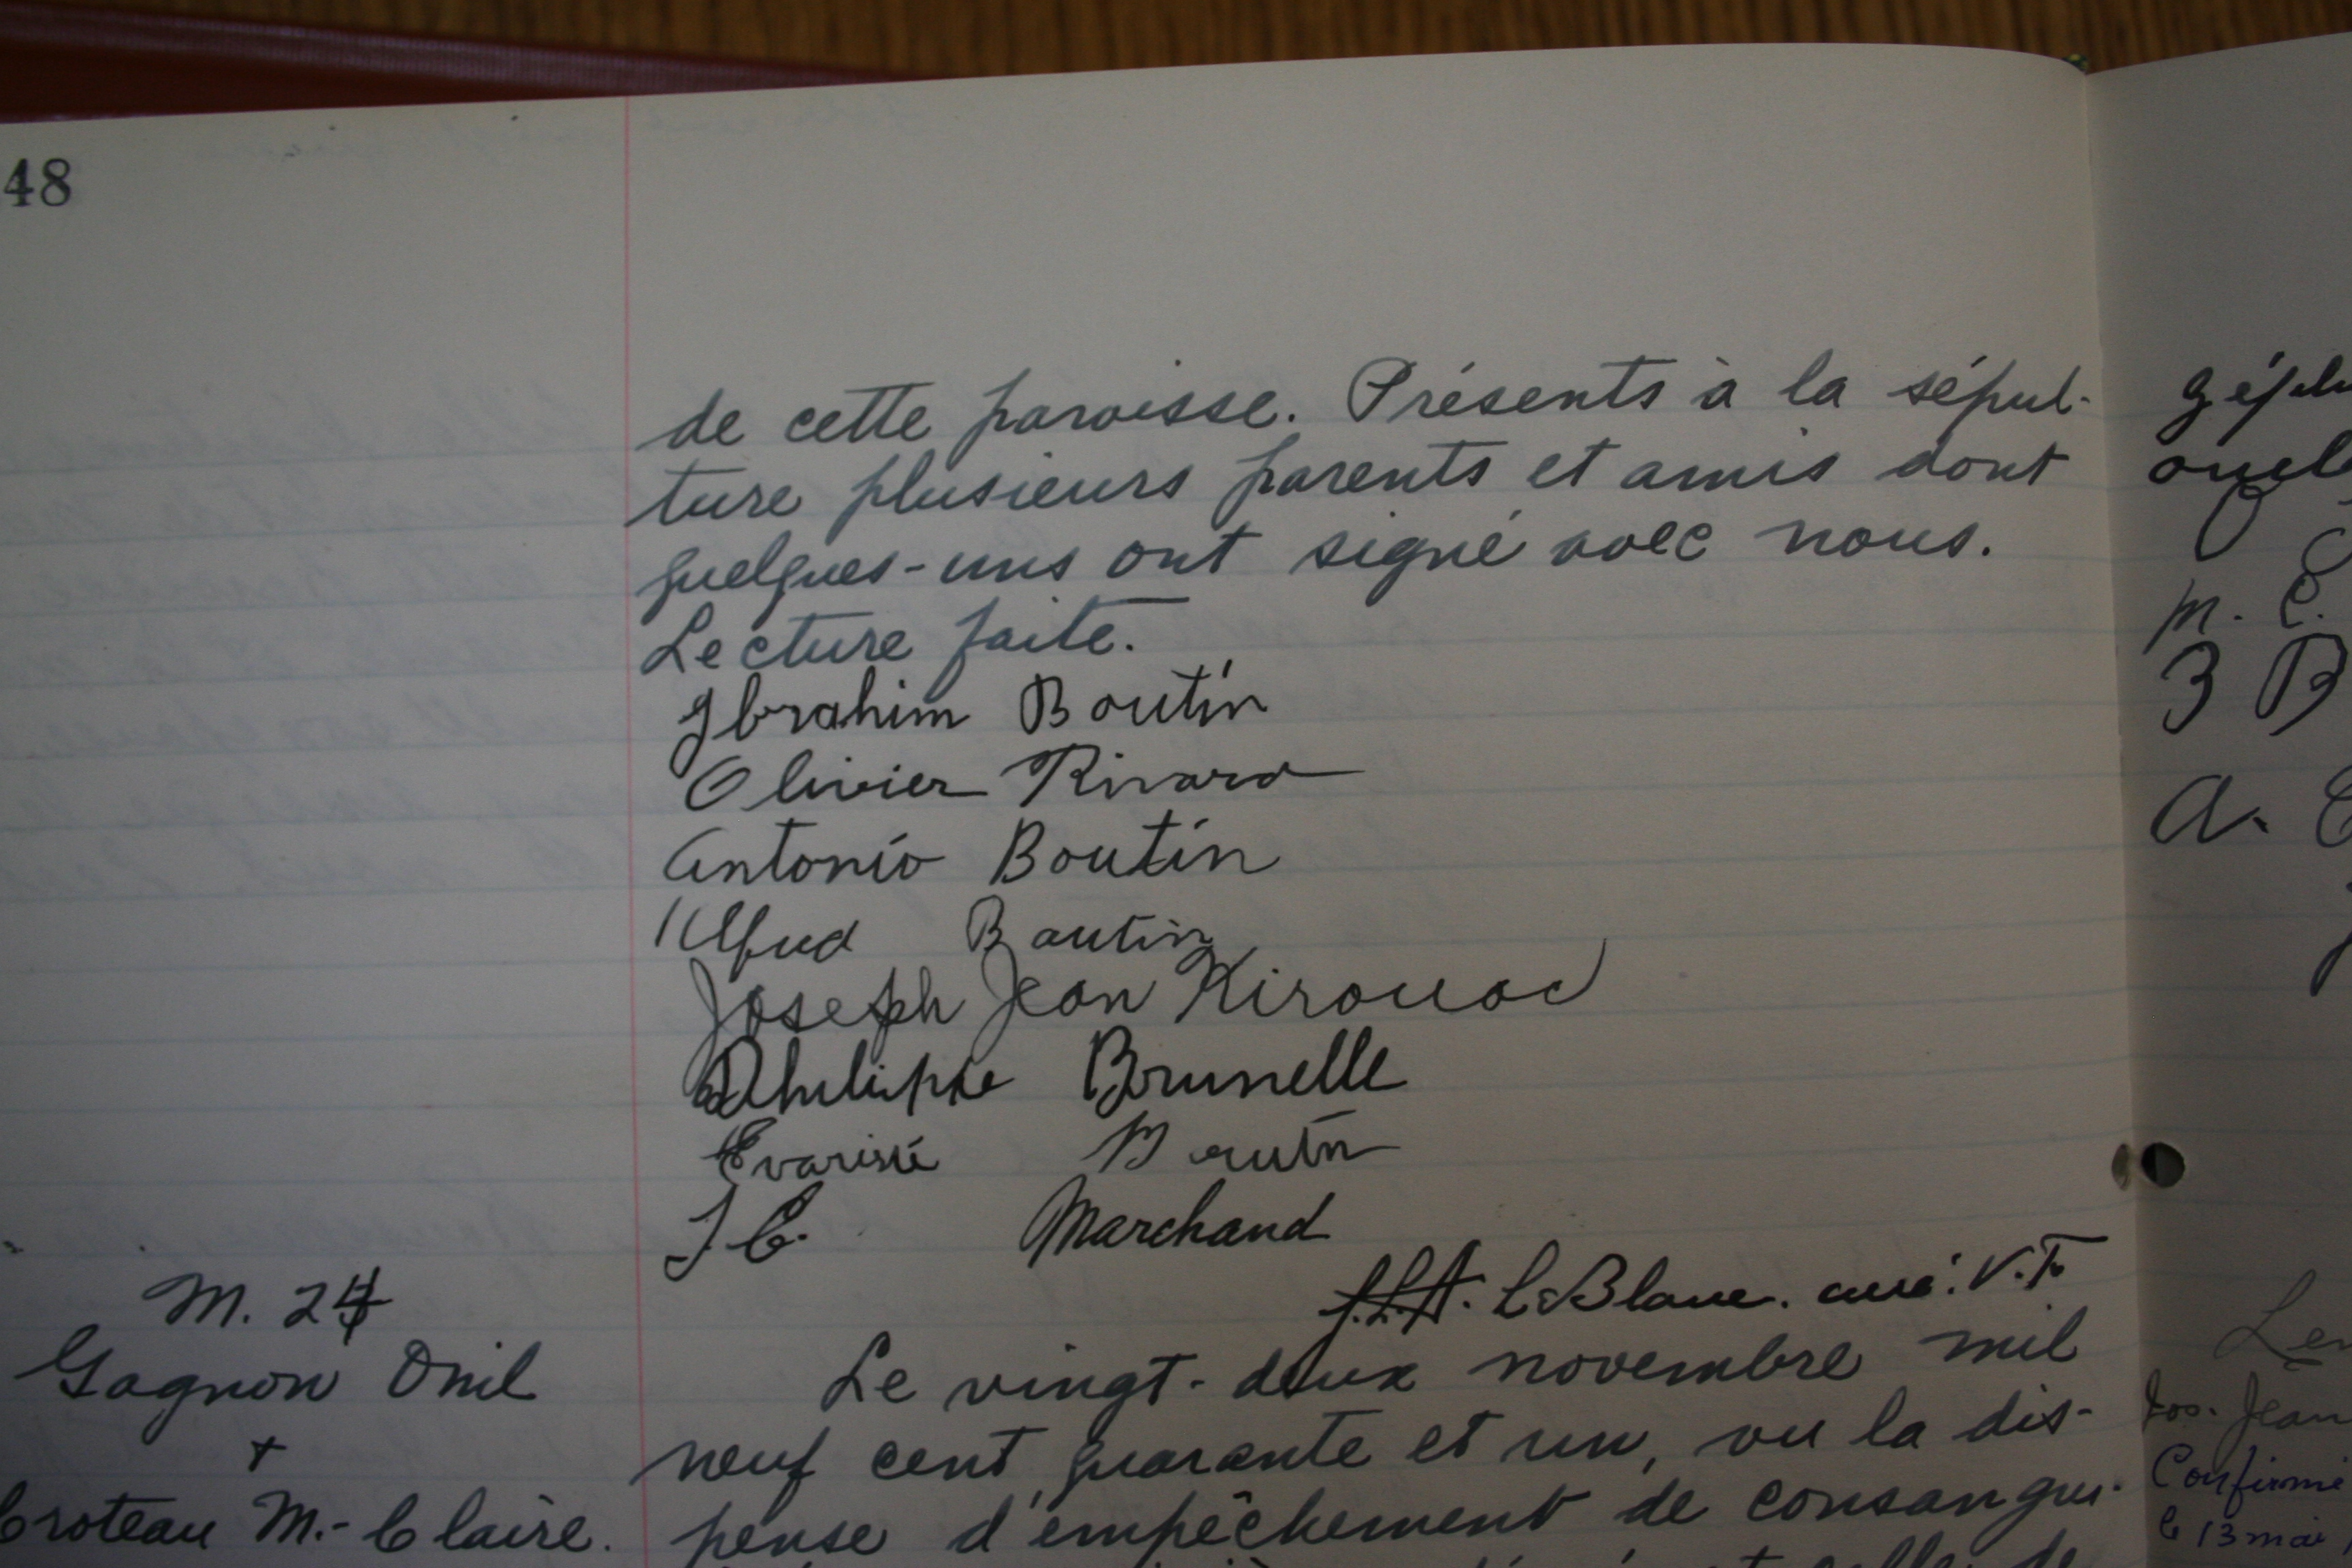 48
de cette paroisse. Présents à la sépul-
ture plusieurs parents et amis dont
quelques-uns ont signé avec nous.
Lecture faite.
Ibrahim Boutin
Olivier Rivard
Antonio Boutin
Alfred Boutin
Joseph Jean Kirouac
Philippe Brunelle
Evariste Boutin
J. E. Marchand
J.L.A. LeBlanc. curé. V.F.
M. 24
Gagnon Onil
+
Croteau M.-Claire.
Le vingt-deux novembre mil
neuf cent quarante et un, vu la dis-
pense d'empêchement de consangui-
M. E.
3 B
A.
Jos. Jean
Confirmé
le 13 mai